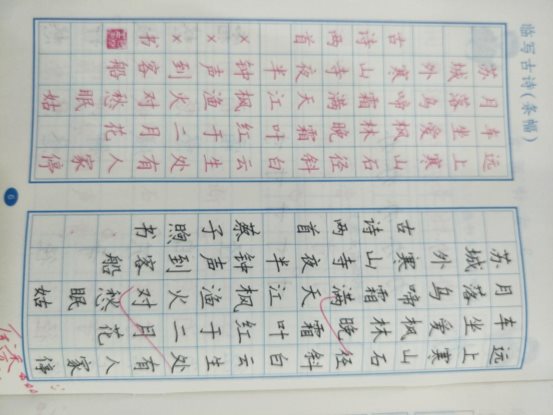 临写古诗(条幅)
远上寒山石径斜白云生处有人家停
车坐爱枫林晚霜叶红于二月花
月落乌啼霜满天江枫渔火对愁眠姑
苏城外寒山寺夜半钟声到客船
古诗两首×××书
远上寒山石径斜白云生处有人家停
车坐爱枫林晚霜叶红于二月花
月落乌啼霜满天江枫渔火对愁眠姑
苏城外寒山寺夜半钟声到客船
古诗两首蔡子煦书
6